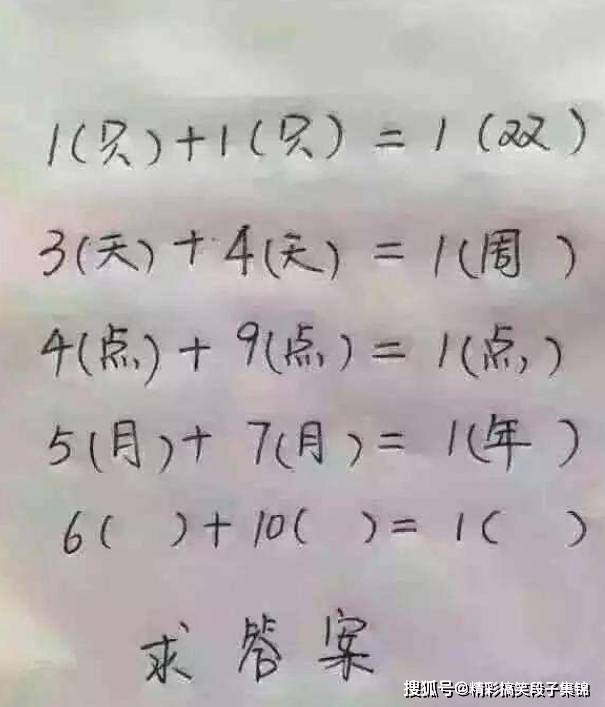 1(只)+1(只)=1(双)
3(天)+4(天)=1(周)
4(点)+9(点)=1(点)
5(月)+7(月)=1(年)
6( )+10( )=1( )
求答案
搜狐号@精彩搞笑段子集锦